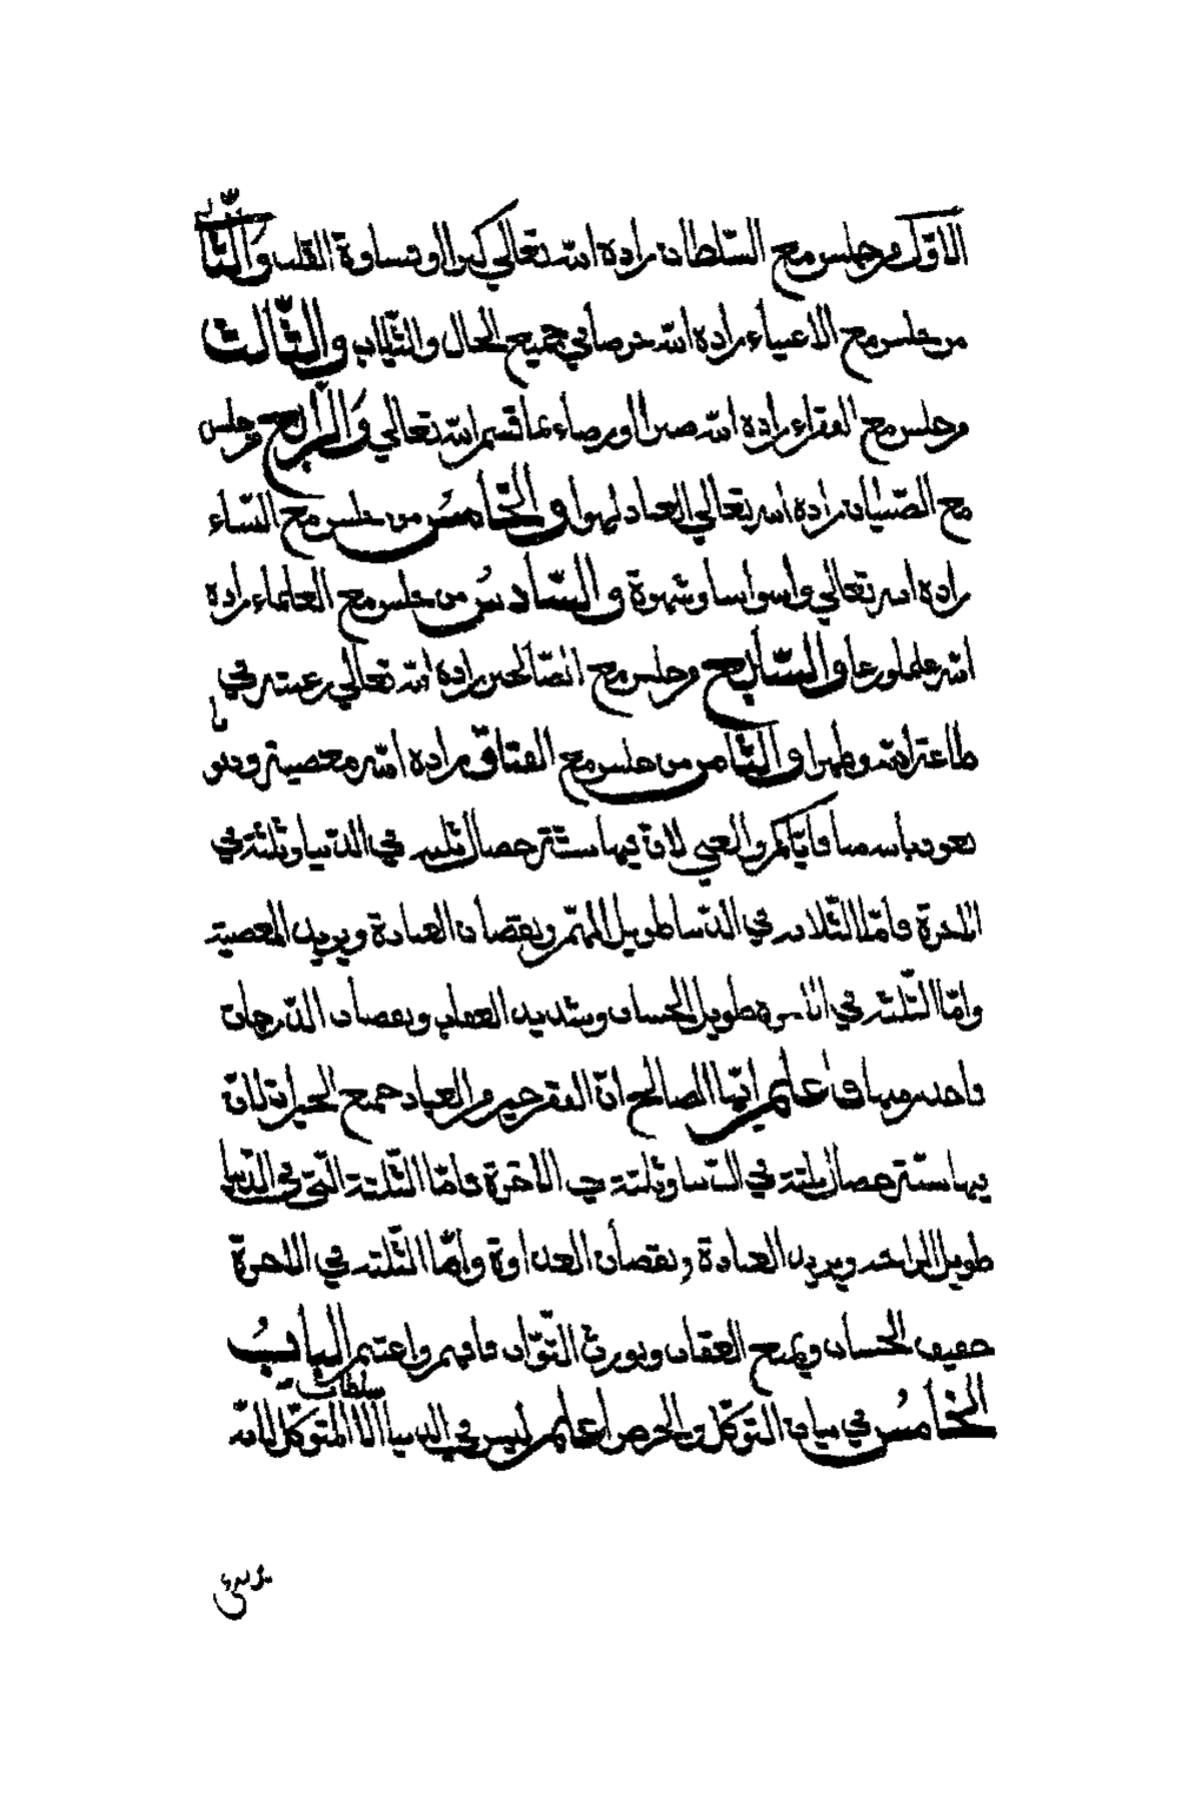 الاوّل من جلس مع السّلطان زاده الله تعالي كبرا وقساوة القلب والثّاني
من جلس مع الاغنياء زاده الله حرصا في جميع الحال والثياب والثّالث
من جلس مع الفقراء زاده الله صبرا ورضاء بما قسم الله تعالي والرّابع من جلس
مع الصّبيان زاده الله تعالي لعبا ولهوا والخامس من جلس مع النّساء
زاده الله تعالي وسواسا وشهوة والسّادس من جلس مع العلماء زاده
الله علما وورعا والسّابع من جلس مع الصّالحين زاده الله تعالي رغبته في
طاعة الله والثّامن من جلس مع الفسّاق زاده الله معصيته
نعوذ بالله منها فايّاكم والغني لانّ فيها ستّة خصال ثلثه في الدّنيا وثلثة في
الاخرة فامّا الثّلاثه في الدّنيا طويل الهمّ ونقصان العبادة ويزيد المعصية
وامّا الثّلثه في الاخرة طويل الحساب وشديد العقاب ونقصان الدّرجات
اعلم ايّها الصالح انّ الفقر خير من العباد جميع الخيرات لانّ
فيها ستّة خصال ثلثة في الدّنيا وثلثة في الاخرة فامّا الثّلثة الّتي في الدّنيا
طويل الراحه ويزيد العبادة ونقصان العداوة وامّا الثّلثه في الاخرة
خفيف الحساب ويمنع العقاب ويورث الثّواب فافهم واغتنم الباب
الخامس في بيان التوكّل والحرص اعلم ليس في الدنيا سلطان الّا المتوكّل لانّه